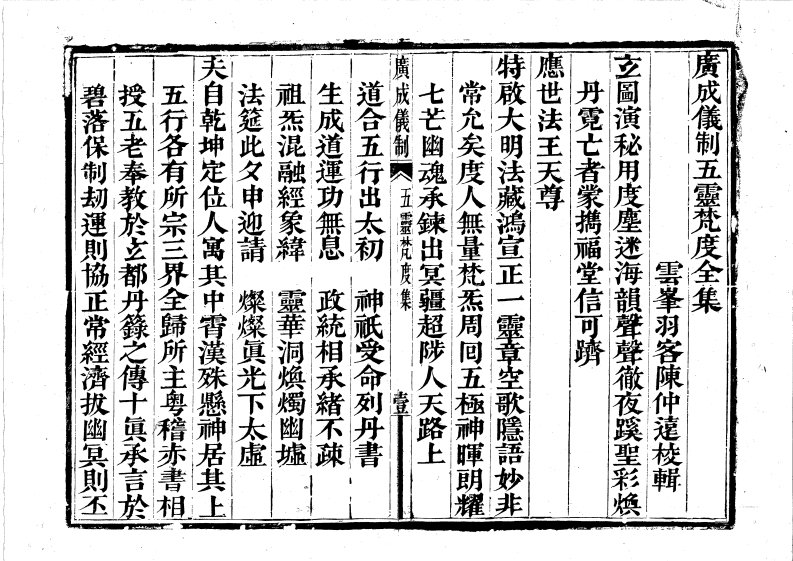 廣成儀制五靈梵度全集
雲峯羽客陳仲遠校輯
玄圖演秘用度塵迷海韻聲聲徹夜蹊聖彩煥
丹霓亡者蒙擕福堂信可躋
應世法王天尊
特啟大明法藏鴻宣正一靈章空歌隱語妙非
常允矣度人無量梵炁周回五極神暉朗耀
七芒幽魂承鍊出冥疆超陟人天路上
廣成儀制 五靈梵度集 壹
道合五行出太初 神祇受命列丹書
生成道運功無息 政統相承緒不疎
祖炁混融經象緯 靈華洞煥燭幽墟
法筵此夕申迎請 燦燦眞光下太虛
夫自乾坤定位人寓其中霄漢殊懸神居其上
五行各有所宗三界全歸所主粤稽赤書相
授五老奉教於玄都丹籙之傳十眞承言於
碧落保制劫運則協正常經濟拔幽冥則丕